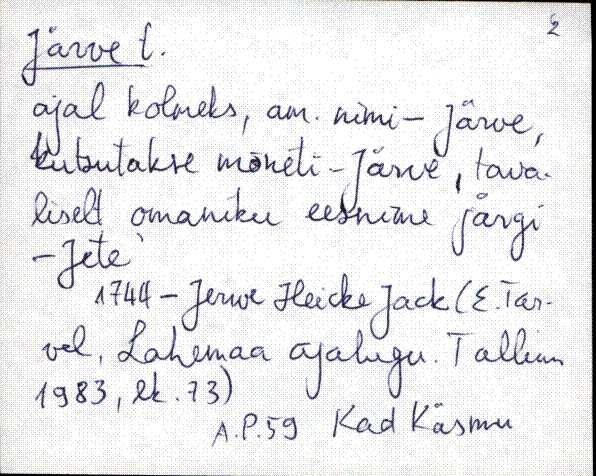 2
Järve t.
ajal kolmeks, am. nimi - Järve,
kutsutakse mõneti - Järve, tava-
liselt omaniku eesnime järgi
- Jete`
1744 - Jerwe Heicke Jack (E. Tar-
vel, Lahemaa ajalugu. Tallinn
1983, lk. 73)
A.P.59 Kad Käsmu